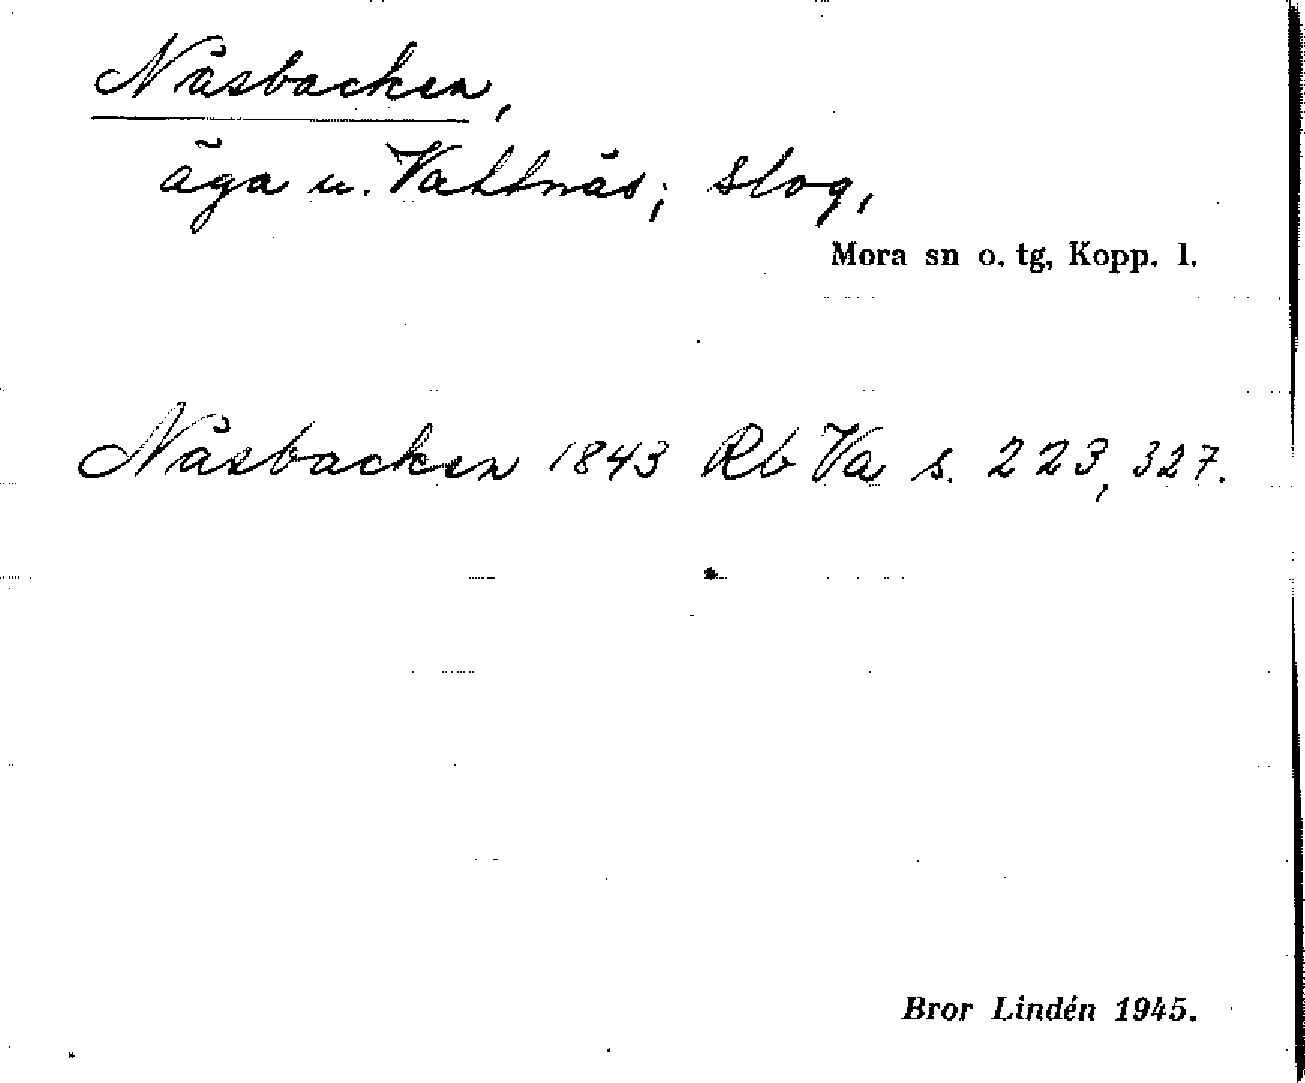 Nåsbacken,
äga u. Vattnäs; slog,
Mora sn o. tg, Kopp. l.
Nåsbacken 1843 Rb Va s. 223, 327.
Bror Lindén 1945.